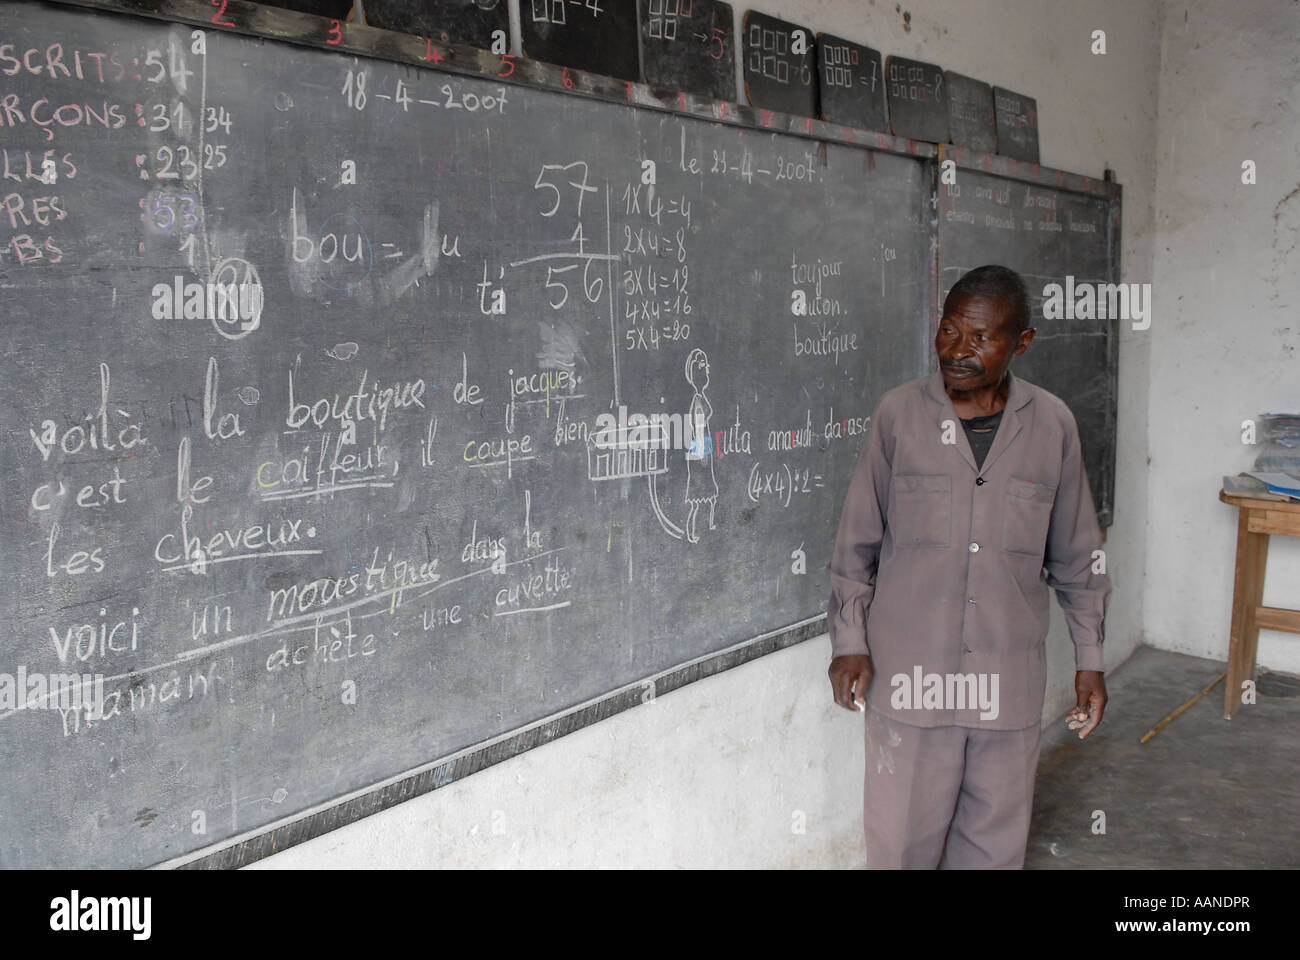 2 3 4 5 6
SCRITS : 54
RÇONS : 31 34
LLES : 23 25
PRES 53
BS 1
81
18-4-2007
bou = u
ti
57
4
56
le 23-4-2007.
1 x 4 = 4
2 x 4 = 8
3 x 4 = 12
4 x 4 = 16
5 x 4 = 20
toujour jou
bouton.
boutique
voilà la boutique de jacques.
c'est le coiffeur, il coupe bien
les cheveux.
voici un moustique dans la
maman achète une cuvette
ruta anarudi darasa
(4x4):2=
=4
→5
=7
=8
alamy
Image ID: AANDPR
www.alamy.com